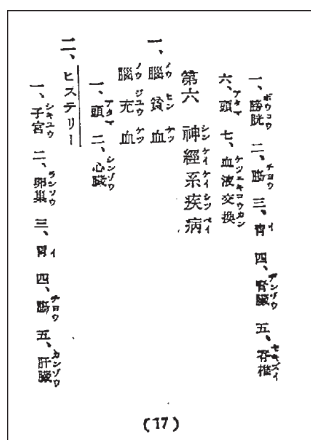 一、膀胱 二、腸 三、胃 四、腎臓 五、脊椎
六、頭 七、血液交換
第六 神經系疾病
一、腦貧血
腦充血
一、頭 二、心臓
二、ヒステリー
一、子宮 二、卵巣 三、胃 四、腸 五、肝臓
(17)